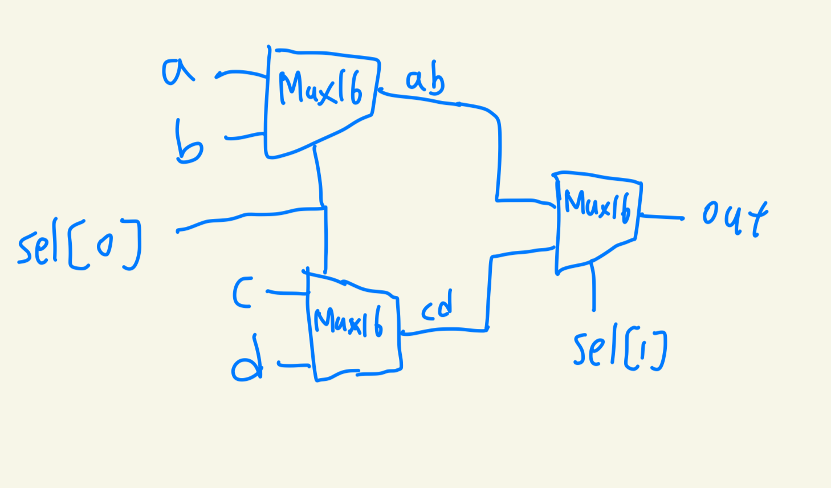 a
Mux16
ab
b
sel[0]
c
Mux16
cd
d
Mux16
out
sel[1]